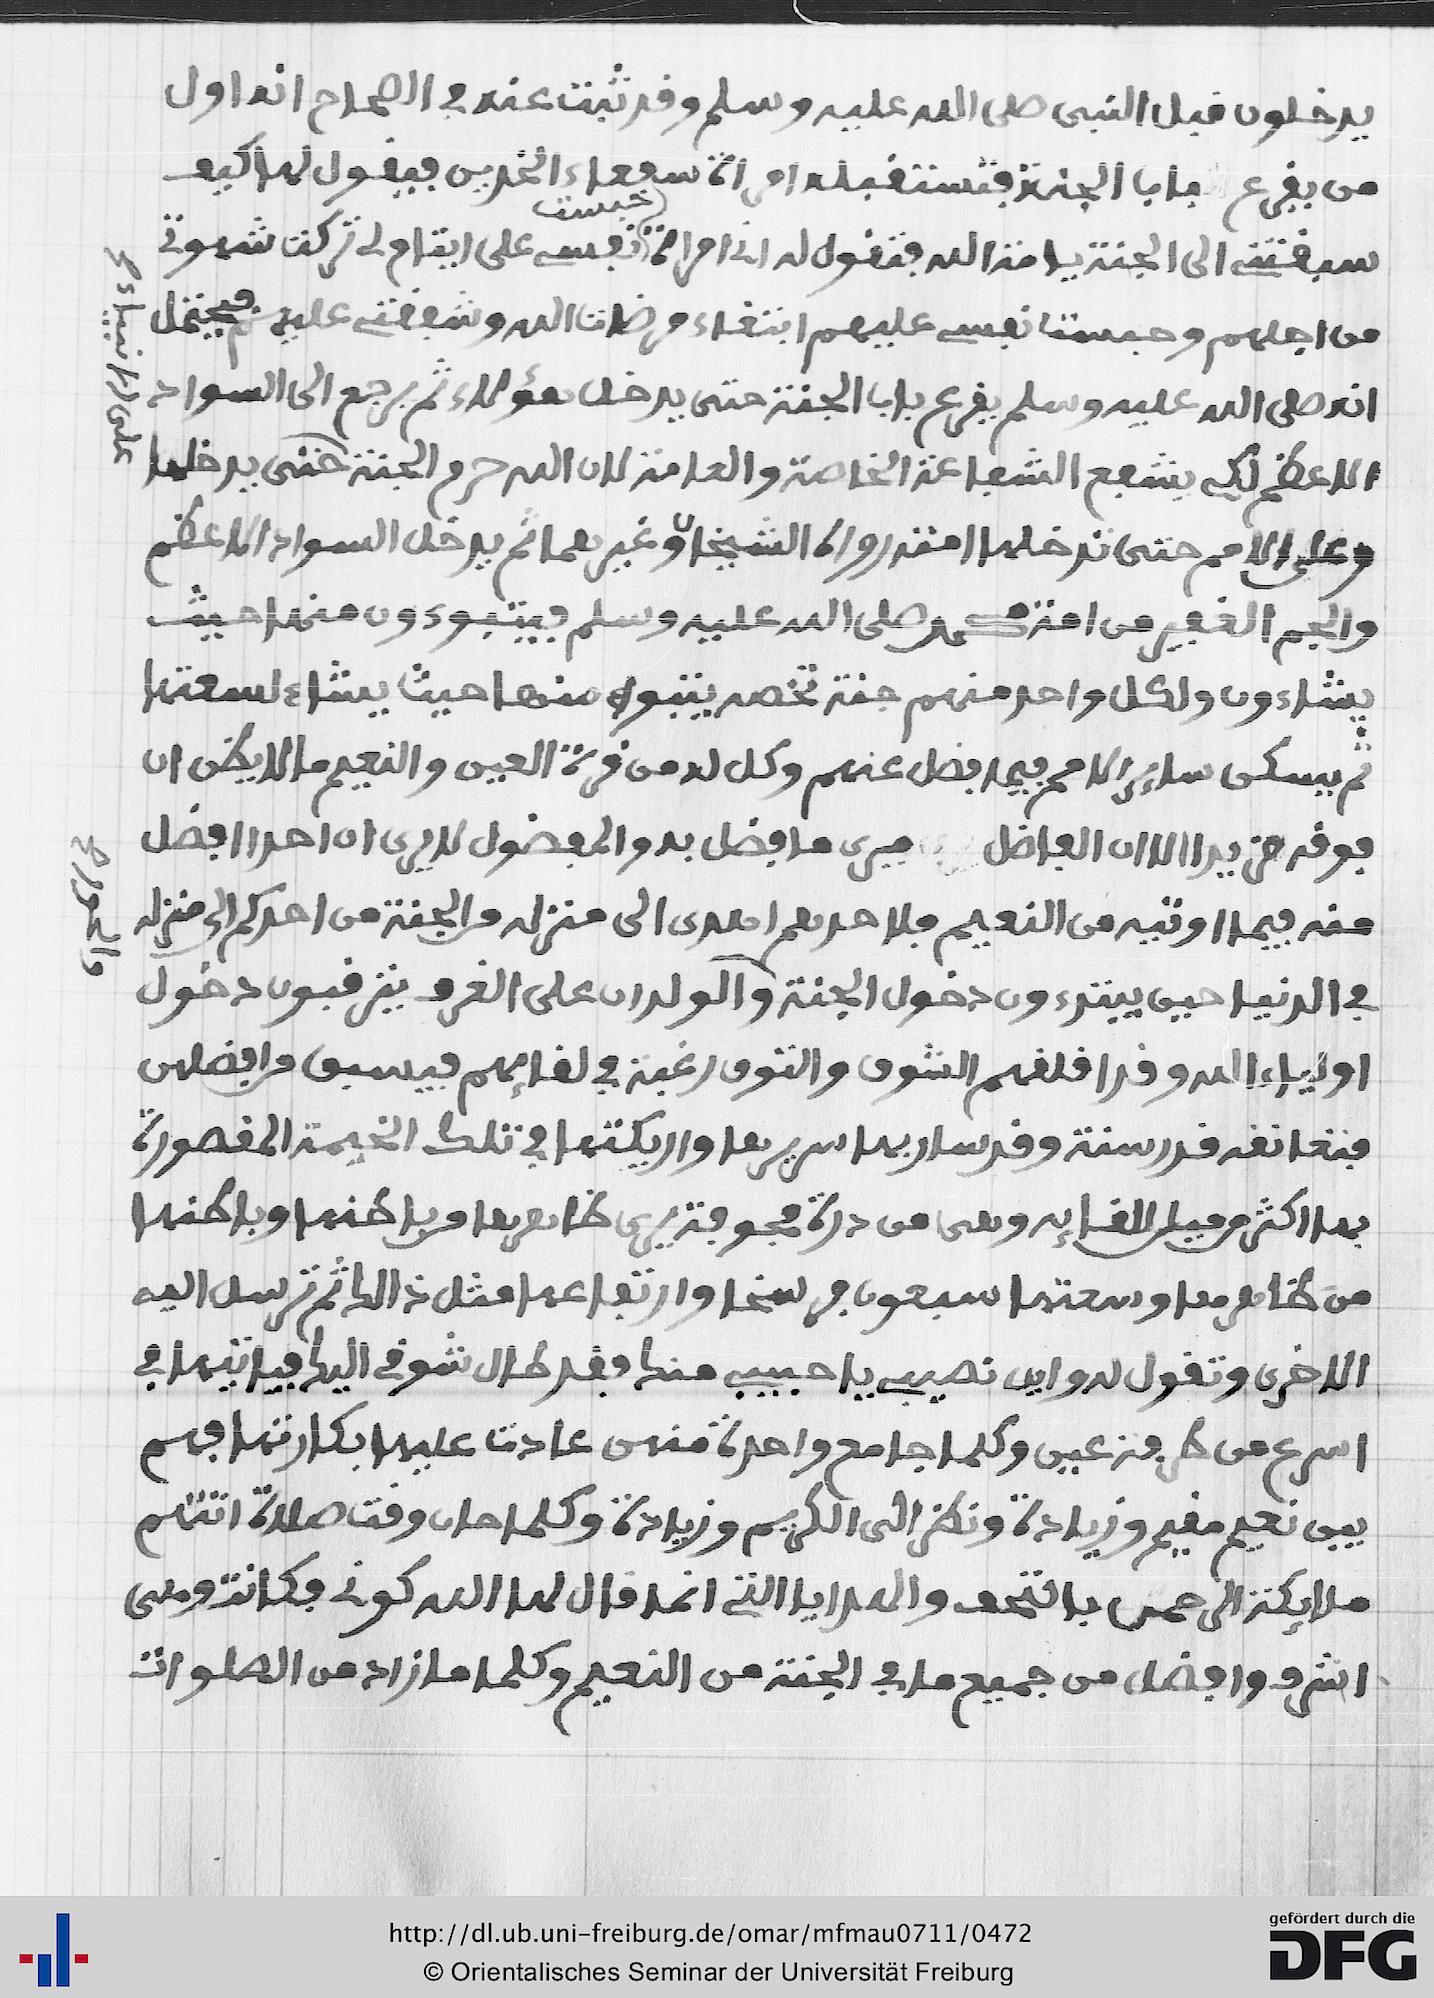 يدخلون قبل النبي صلى الله عليه وسلم وقد ثبت عنه في الصحاح انه اول
من يقرع باب الجنة فتستقبله امراة سفعاء الخدين فيقول لها كيف
سبقتني الى الجنة يا امة الله فتقول له اني امراة حبست نفسي على ايتام لي تركت شهوتي
من اجلهم وحبست نفسي عليهم ابتغاء مرضات الله وشفقتي عليهم فيحتمل
انه صلى الله عليه وسلم يقرع باب الجنة حتى يدخل هؤلاء ثم يرجع الى السواد
الاعظم لكي يشفع الشفاعة الخاصة والعامة لان الله حرم الجنة حتى يدخلها
على الانبياء صح
وعلى الامم حتى تدخلها امته رواه الشيخان وغيرهما ثم يدخل السواد الاعظم
والجم الغفير من امة محمد صلى الله عليه وسلم فيتبوءون منها حيث
يشاءون ولكل واحد منهم جنة تخصه يتبوء منها حيث يشاء لسعتها
ثم يسكن سائر الامم فيما فضل عنهم وكل له من قرة العين والنعيم ما لا يظن ان
فوقه مزيدا الا ان الفاضل يرى ما فضل به والمفضول لا يرى ان احدا افضل
منه فيما اوتيه من النعيم فلاحدهم اهدى الى منزله في الجنة من احدكم الى منزله
في الدنيا حين يبتدءون دخول الجنة والولدان على الغرف يترقبون دخول
والحور صح
اولياء الله وقد اقلقهم الشوق والتوق رغبة في لقائهم فيسبق من افضلهن
فتعانقه قدر سنة وقد سار بها سريرها واريكتها في تلك الخيمة المقصورة
بها اكثر من ميل للقائه وهي من درة مجوفة يرى ظاهرها من باطنها وباطنها
من ظاهرها وسعتها سبعون فرسخا وارتفاعها مثل ذالك ثم ترسل اليه
الاخرى وتقول له واين نصيبي يا حبيبي منك فقد طال شوقي اليك فياتيها في
اسرع من طرفة عين وكلما جامع واحدة منهن عادت عليها بكارتها فهم
بين نعيم مقيم وزيادة ونظر الى الكريم وزيادة وكلما حان وقت صلاة اتتهم
ملائكة الرحمن بالتحف والهدايا التي انما قال لها الله كوني فكانت وهي
اشرف وافضل من جميع ما في الجنة من النعيم وكلما ما زاد من الصلوات
http://dl.ub.uni-freiburg.de/omar/mfmau0711/0472
© Orientalisches Seminar der Universität Freiburg
gefördert durch die
DFG